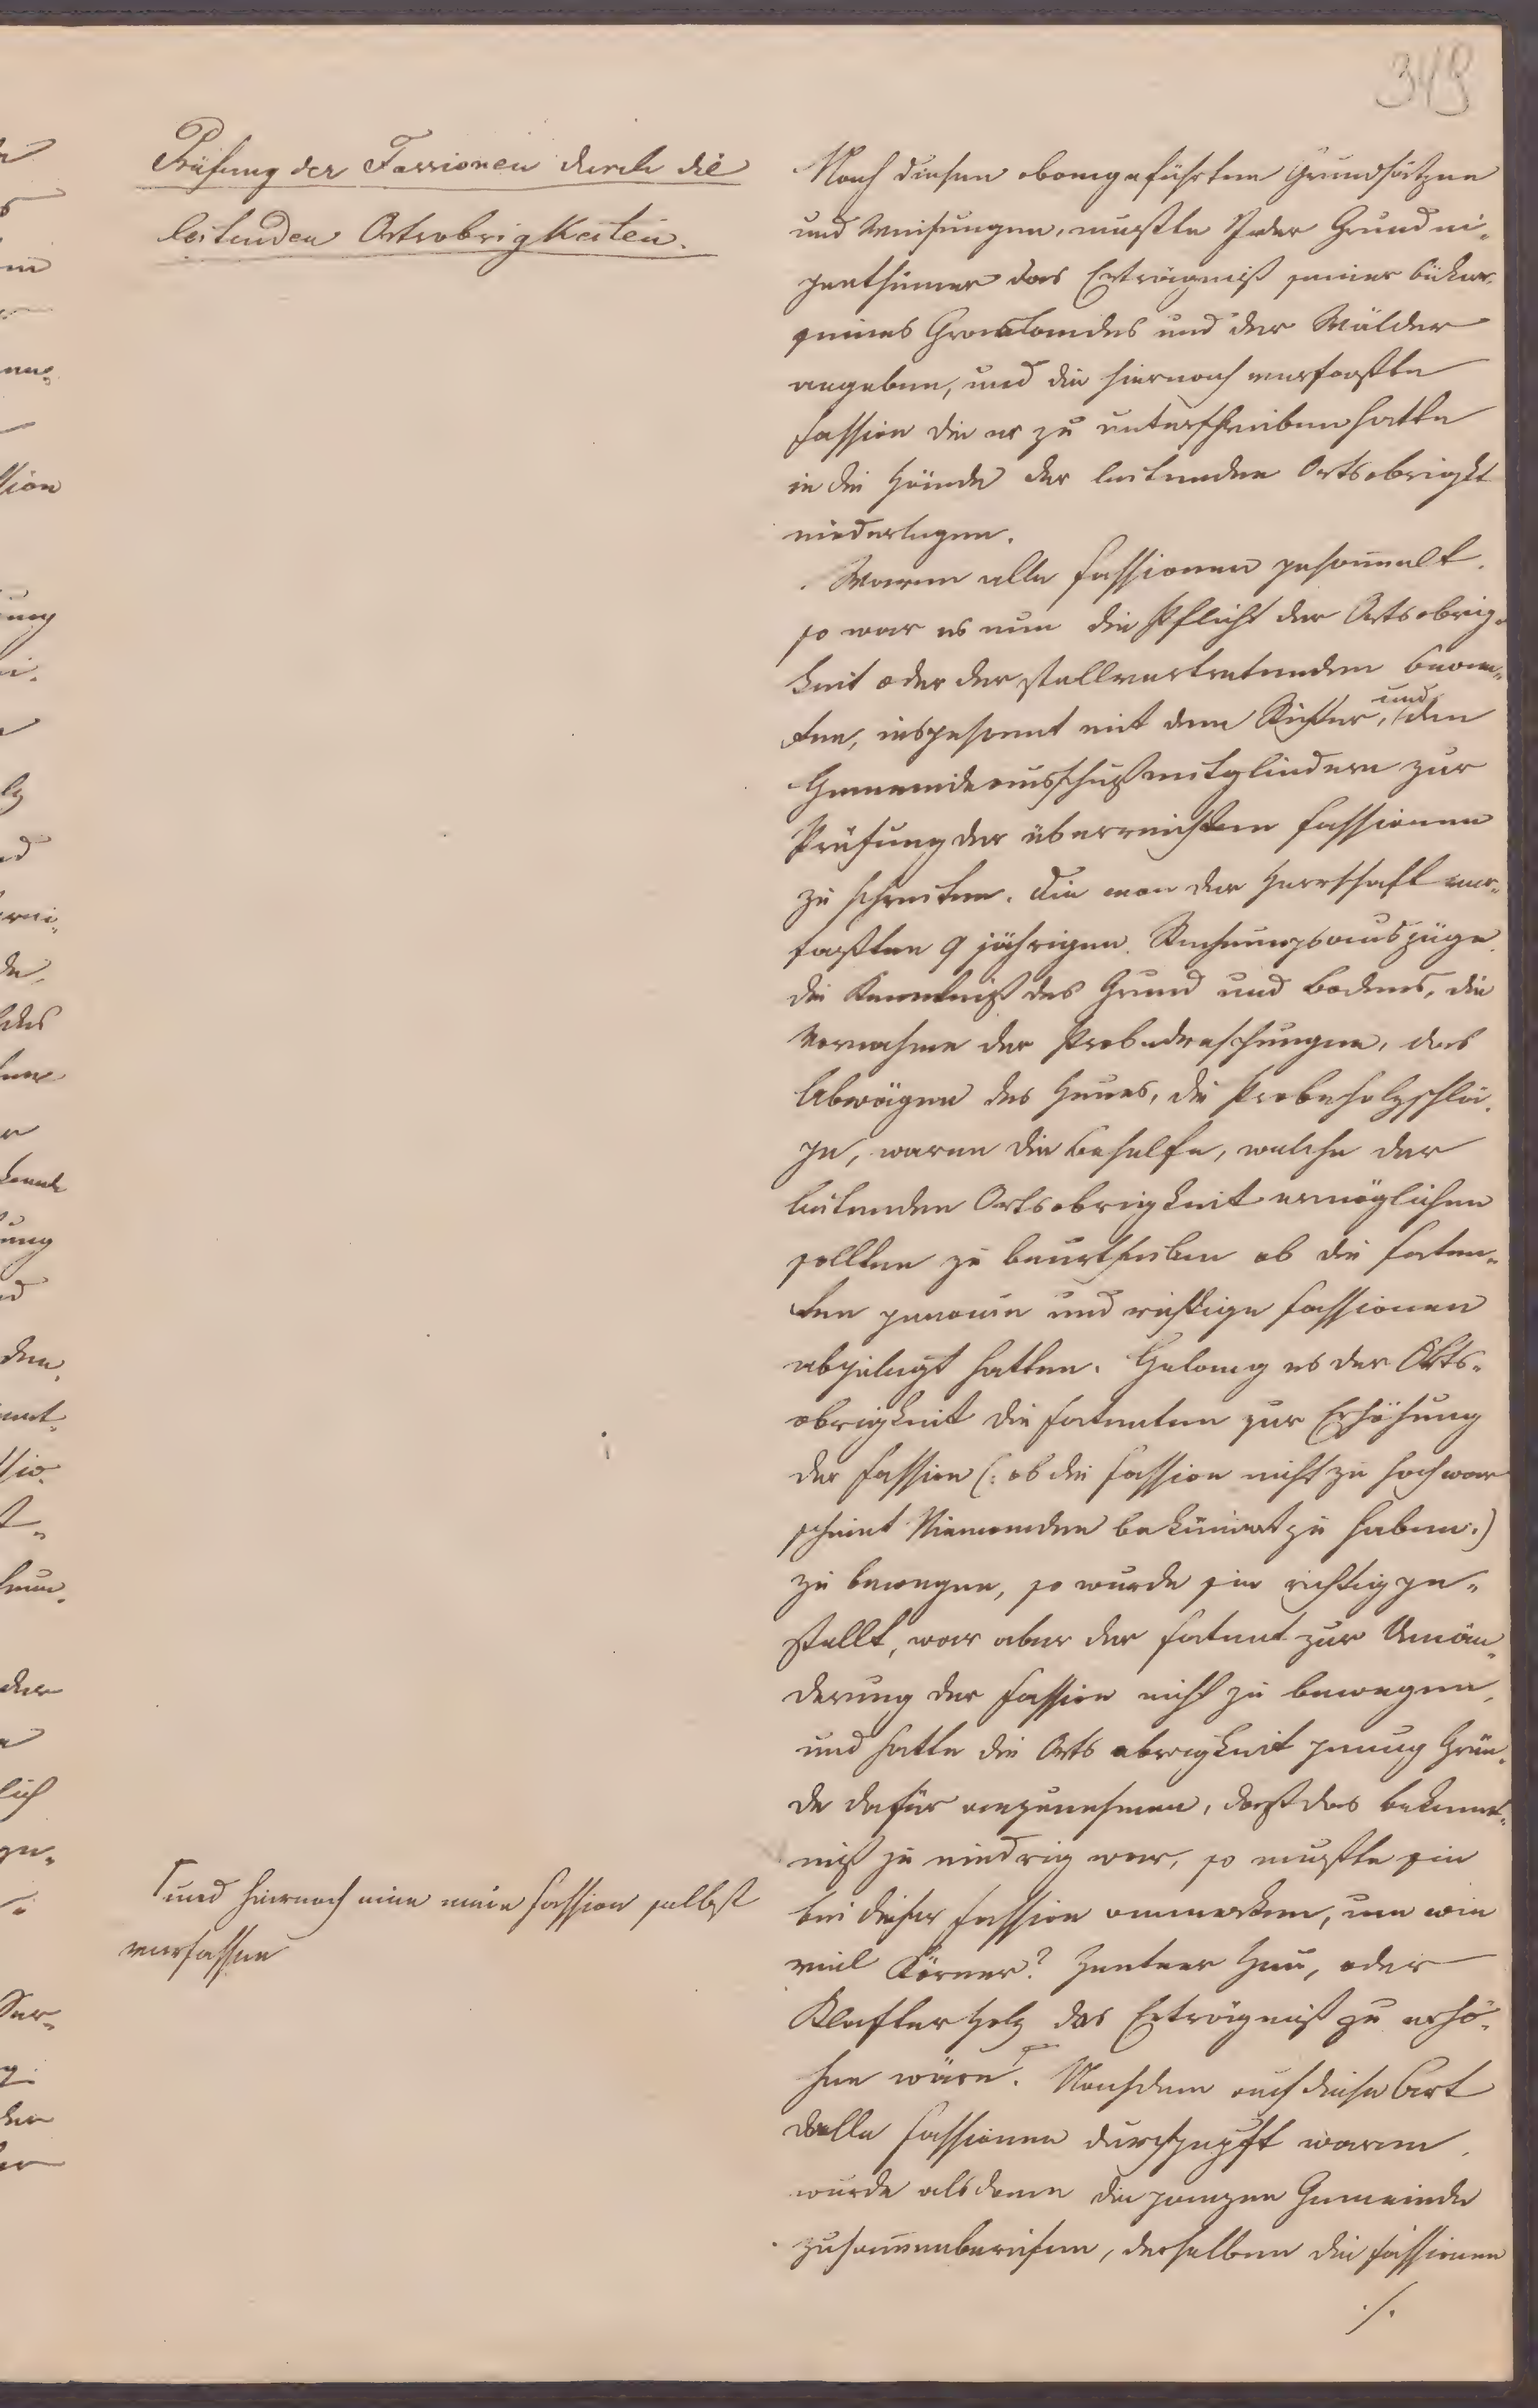 349
Prüfung der Fassionen durch die
leitenden Ortsobrigkeiten.
Nach diesen obangeführten Grundsätzen
und Weisungen, mußte Jeder Grundei-
genthümer das Erträgniß seiner Äcker
seines Graslandes und der Wälder
angeben, und die hiernach verfaßte
Fassion die er zu unterschreiben hatte
in die Hände der leitenden Ortsobrigkt
niederlegen.
Waren alle Fassionen gesam̅elt,
so war es nun die Pflicht der Ortsobrig-
keit oder der stellvertretenden Beam-
ten, insgesamt mit dem Richter, und den
Gemeindeausschußmitgliedern zur
Prüfung der überreichten Fassionen
zu schreiten. Die von der Herrschaft ver-
faßten 9 jährigen Rechnungsauszüge
die Kenntniß des Grund und Bodens, die
Vornahme der Probedreschungen, das
Abwägen des Heues, die Probeholzschlä-
ge, waren die Behelfe, welche der
leitenden Ortsobrigkeit ermöglichen
sollten zu beurtheilen ob die Faten-
ten genaue und richtige Fassionen
abgelegt hatten. Gelang es der Orts-
obrigkeit die Fatenten zur Erhöhung
der Fassion (: ob die Fassion nicht zu hoch war
scheint Niemanden beküm̅ert zu haben :)
zu bewegen, so wurde sie richtig ge-
stellt, war aber der Fatent zur Umän-
derung der Fassion nicht zu bewegen,
und hatte die Orts obrigkeit genug Grün-
de dafür anzunehmen, daß das Bekennt-
niß zu niedrig war, so mußte sie
bei dieser Fassion anmerken, um wie
viel Körner? Zentner Heu, oder
Klafter Holz das Erträgniß zu erhö-
hen wäre. Nachdem auf diese Art
alle Fassionen durchgeprüft waren,
wurde alsdann die ganzen Gemeinde
zusam̅enberufen, derselben die Fassionen
./.
und hiernach eine neue Fassion selbst
verfassen